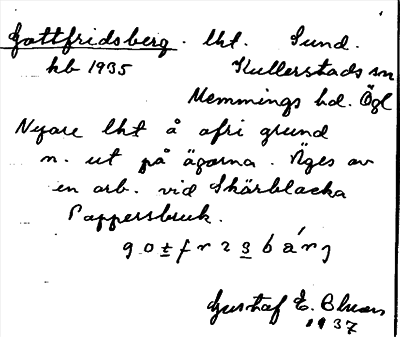 Gottfridsberg. lht. Sund.
kb 1935 Kullerstads sn
Memmings hd. Ögl
Nyare lht å ofri grund
n. ut på ägorna. Äges av
en arb. vid Skärblacka
Pappersbruk.
Gustaf E.
1937